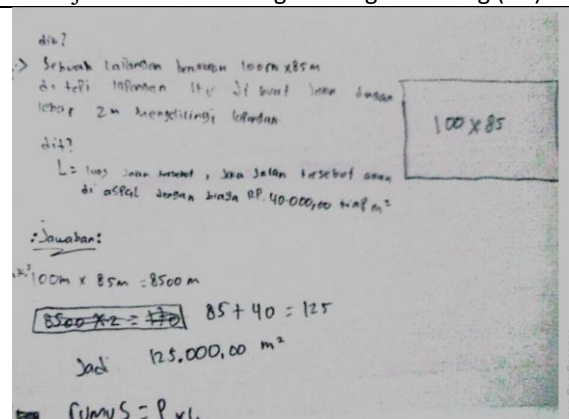 dik?
Sebuah Lapangan berukuran 100m x 85m
di tepi lapangan itu di buat jalan dengan
lebar 2m mengelilingi lapangan
100 x 85
dit?
L = luas jalan tersebut, jika jalan tersebut akan
di asPal dengan biaya RP. 40.000,00 tiap m²
:Jawaban:
100m x 85m = 8500 m
8500 x 2 = 85 + 40 = 125
Jadi 125.000,00 m²
rumus = P x L